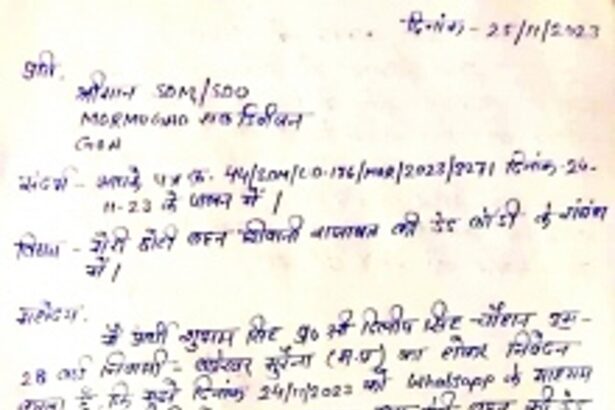 दिनांक - 25/11/2023
प्रति,
श्रीमान SDM/SDO
MORMUGAO सब डिवीजन
GOA
संदर्भ - आपके पत्र क्र. 44/SDM/CD-176/MOR/2023/8271 दिनांक-24-
11-23 के पालन में।
विषय - मेरी छोटी बहन शिवानी की डेड बॉडी के संबंध
में।
महोदय,
मैं प्रार्थी शुभम सिंह पु० श्री दिलीप सिंह चौहान उम्र-
28 वर्ष निवासी - मुरैना (म.प्र) का होकर निवेदन
है कि मुझे दिनांक 24/11/2023 को Whatsapp के माध्यम